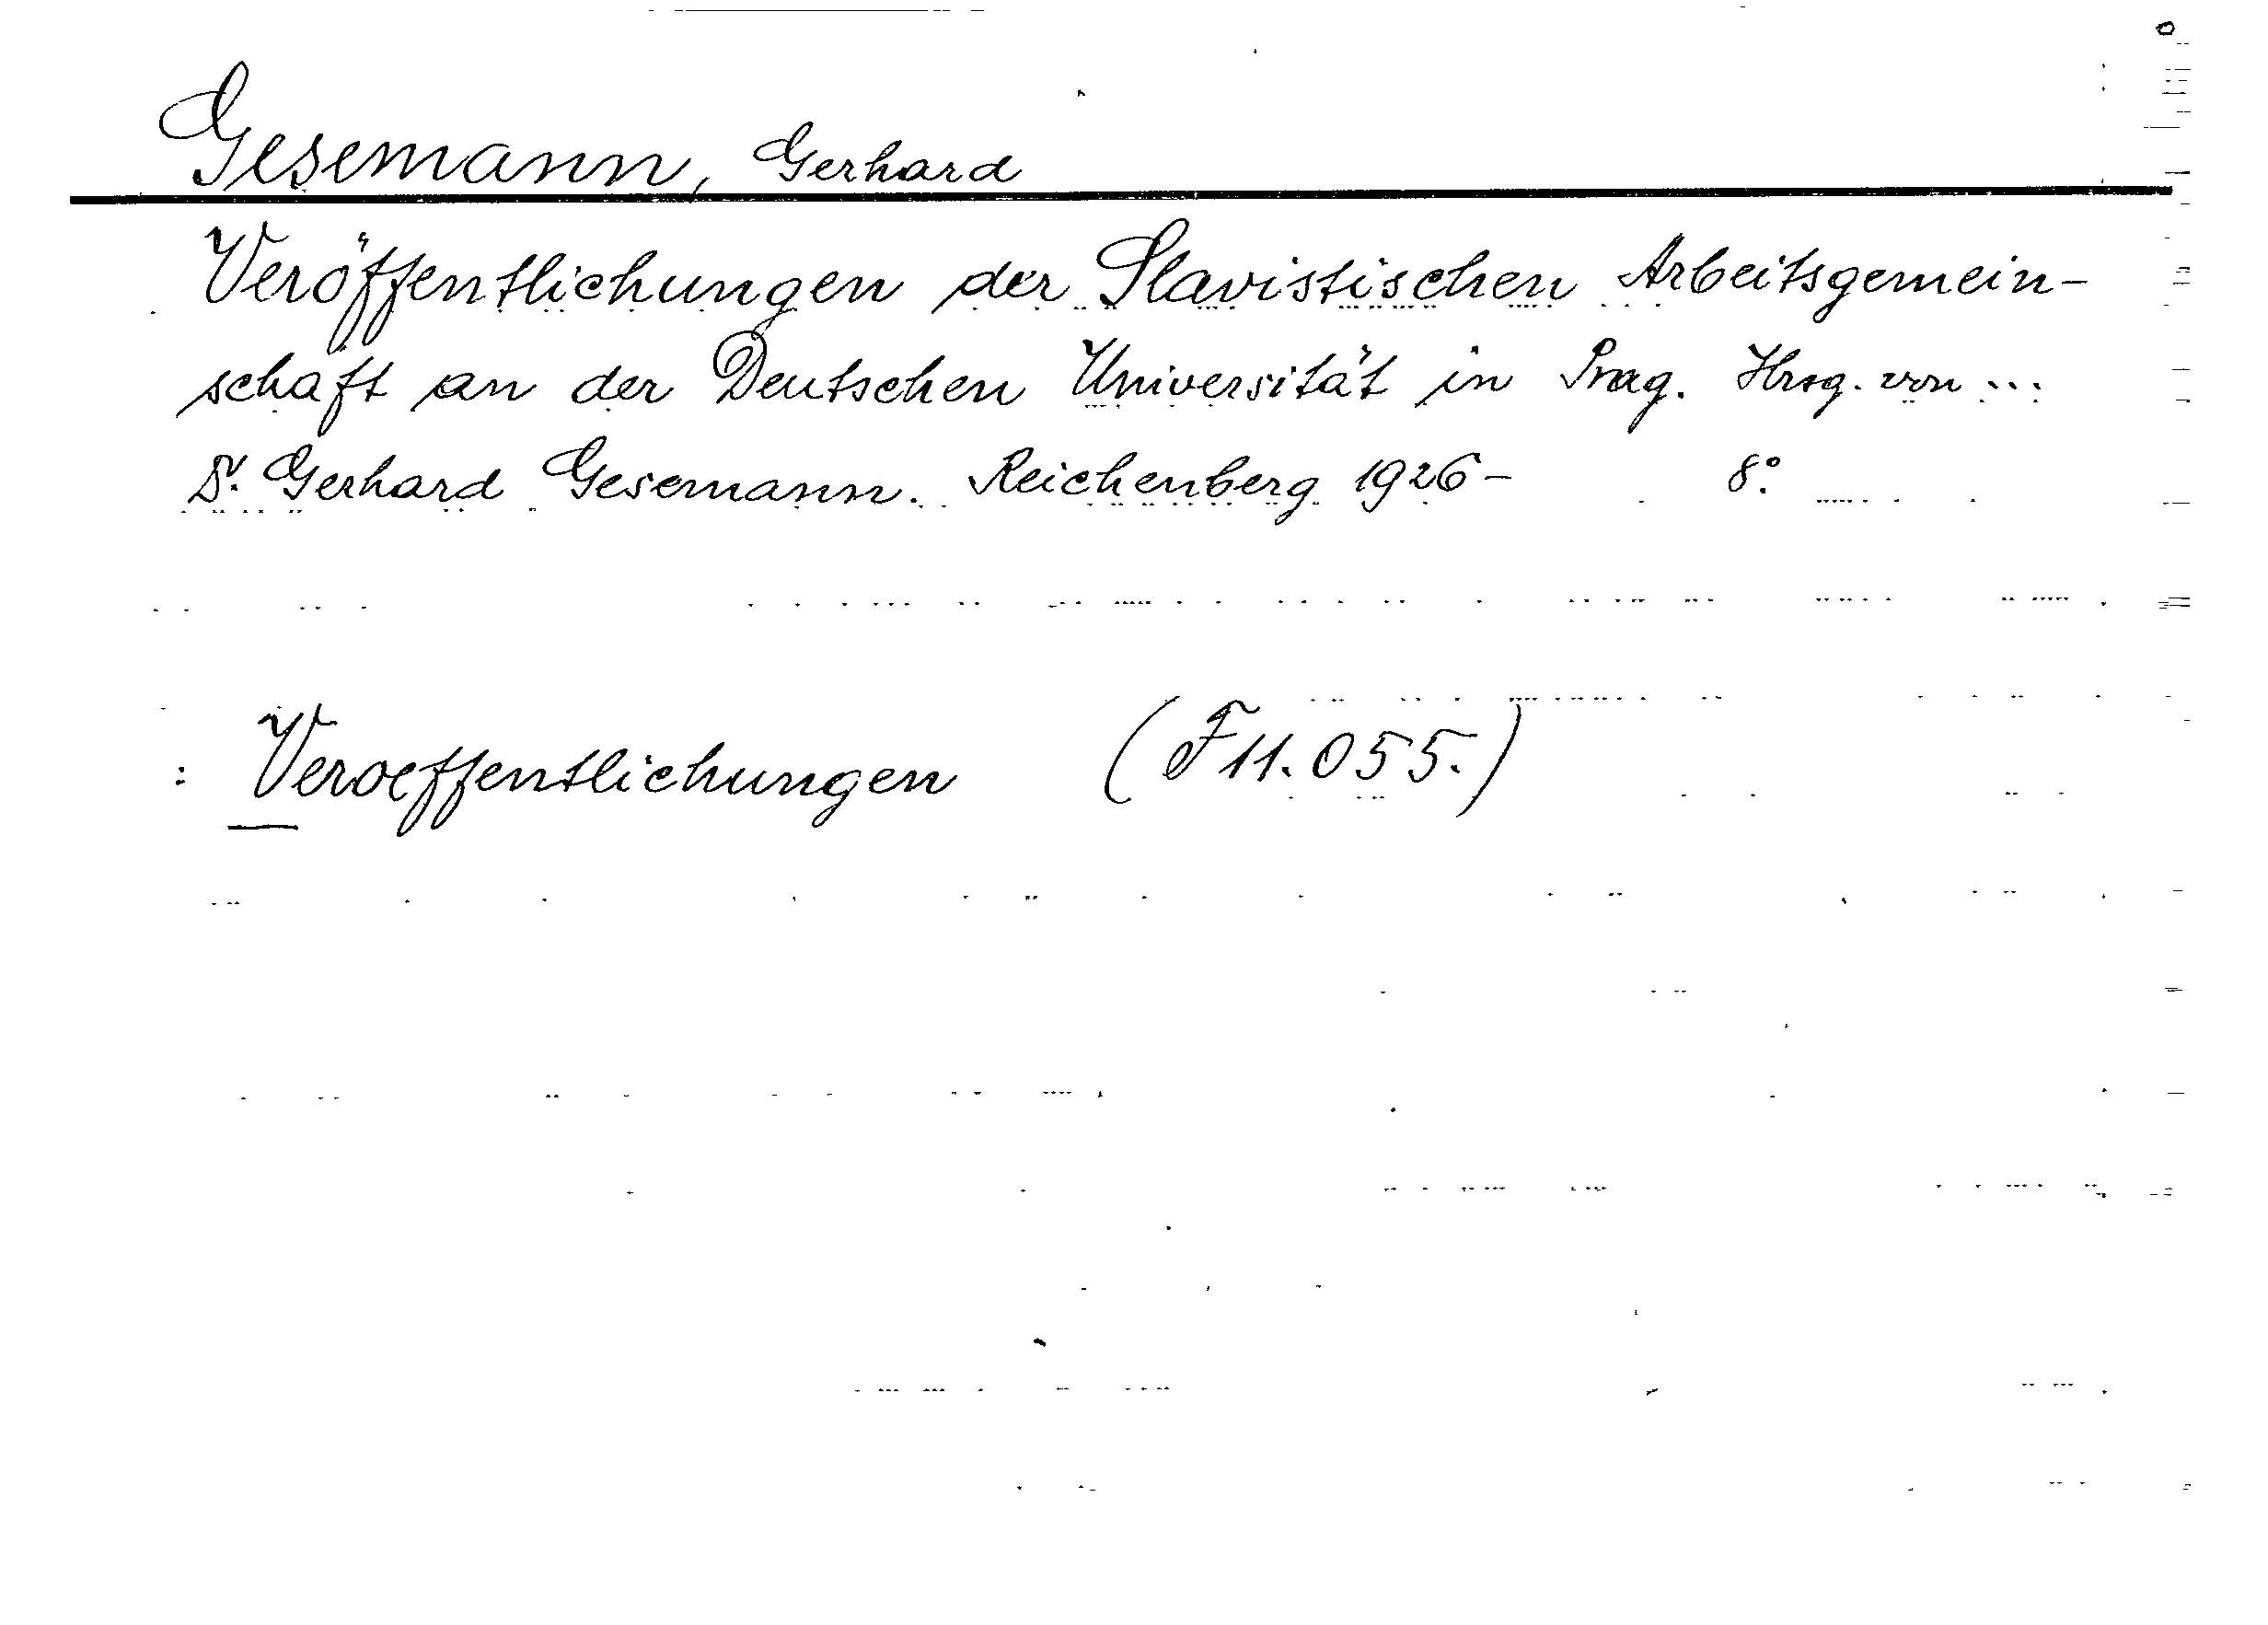 Gesemann, Gerhard
Veröffentlichungen der Slavistischen Arbeitsgemein-
schaft an der Deutschen Universität in Prag. Hrsg. von ...
Dr. Gerhard Gesemann. Reichenberg 1926- 8°.
: Veroeffentlichungen (F 11.055.)